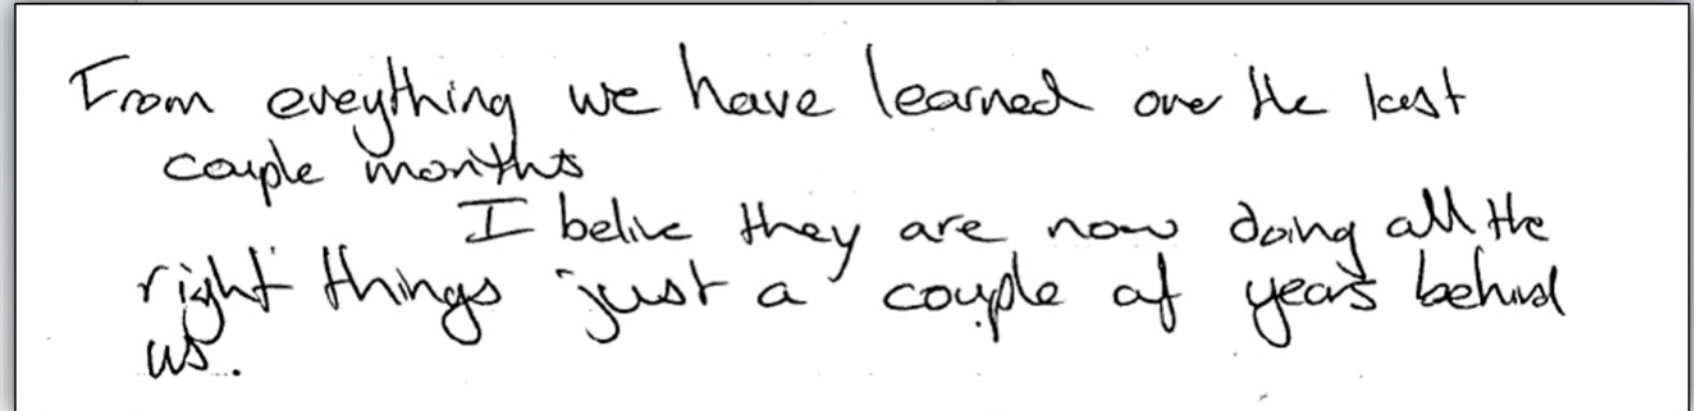 From eveything we have learned over the last
couple months
I belive they are now doing all the
right things just a couple of years behind
us.